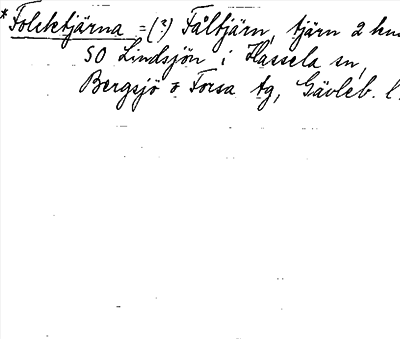 *Folcktjärna = (?) Fåltjärn, tjärn 2 km
SO Lindsjön i Hassela sn,
Bergsjö o Forsa tg, Gävleb. l.